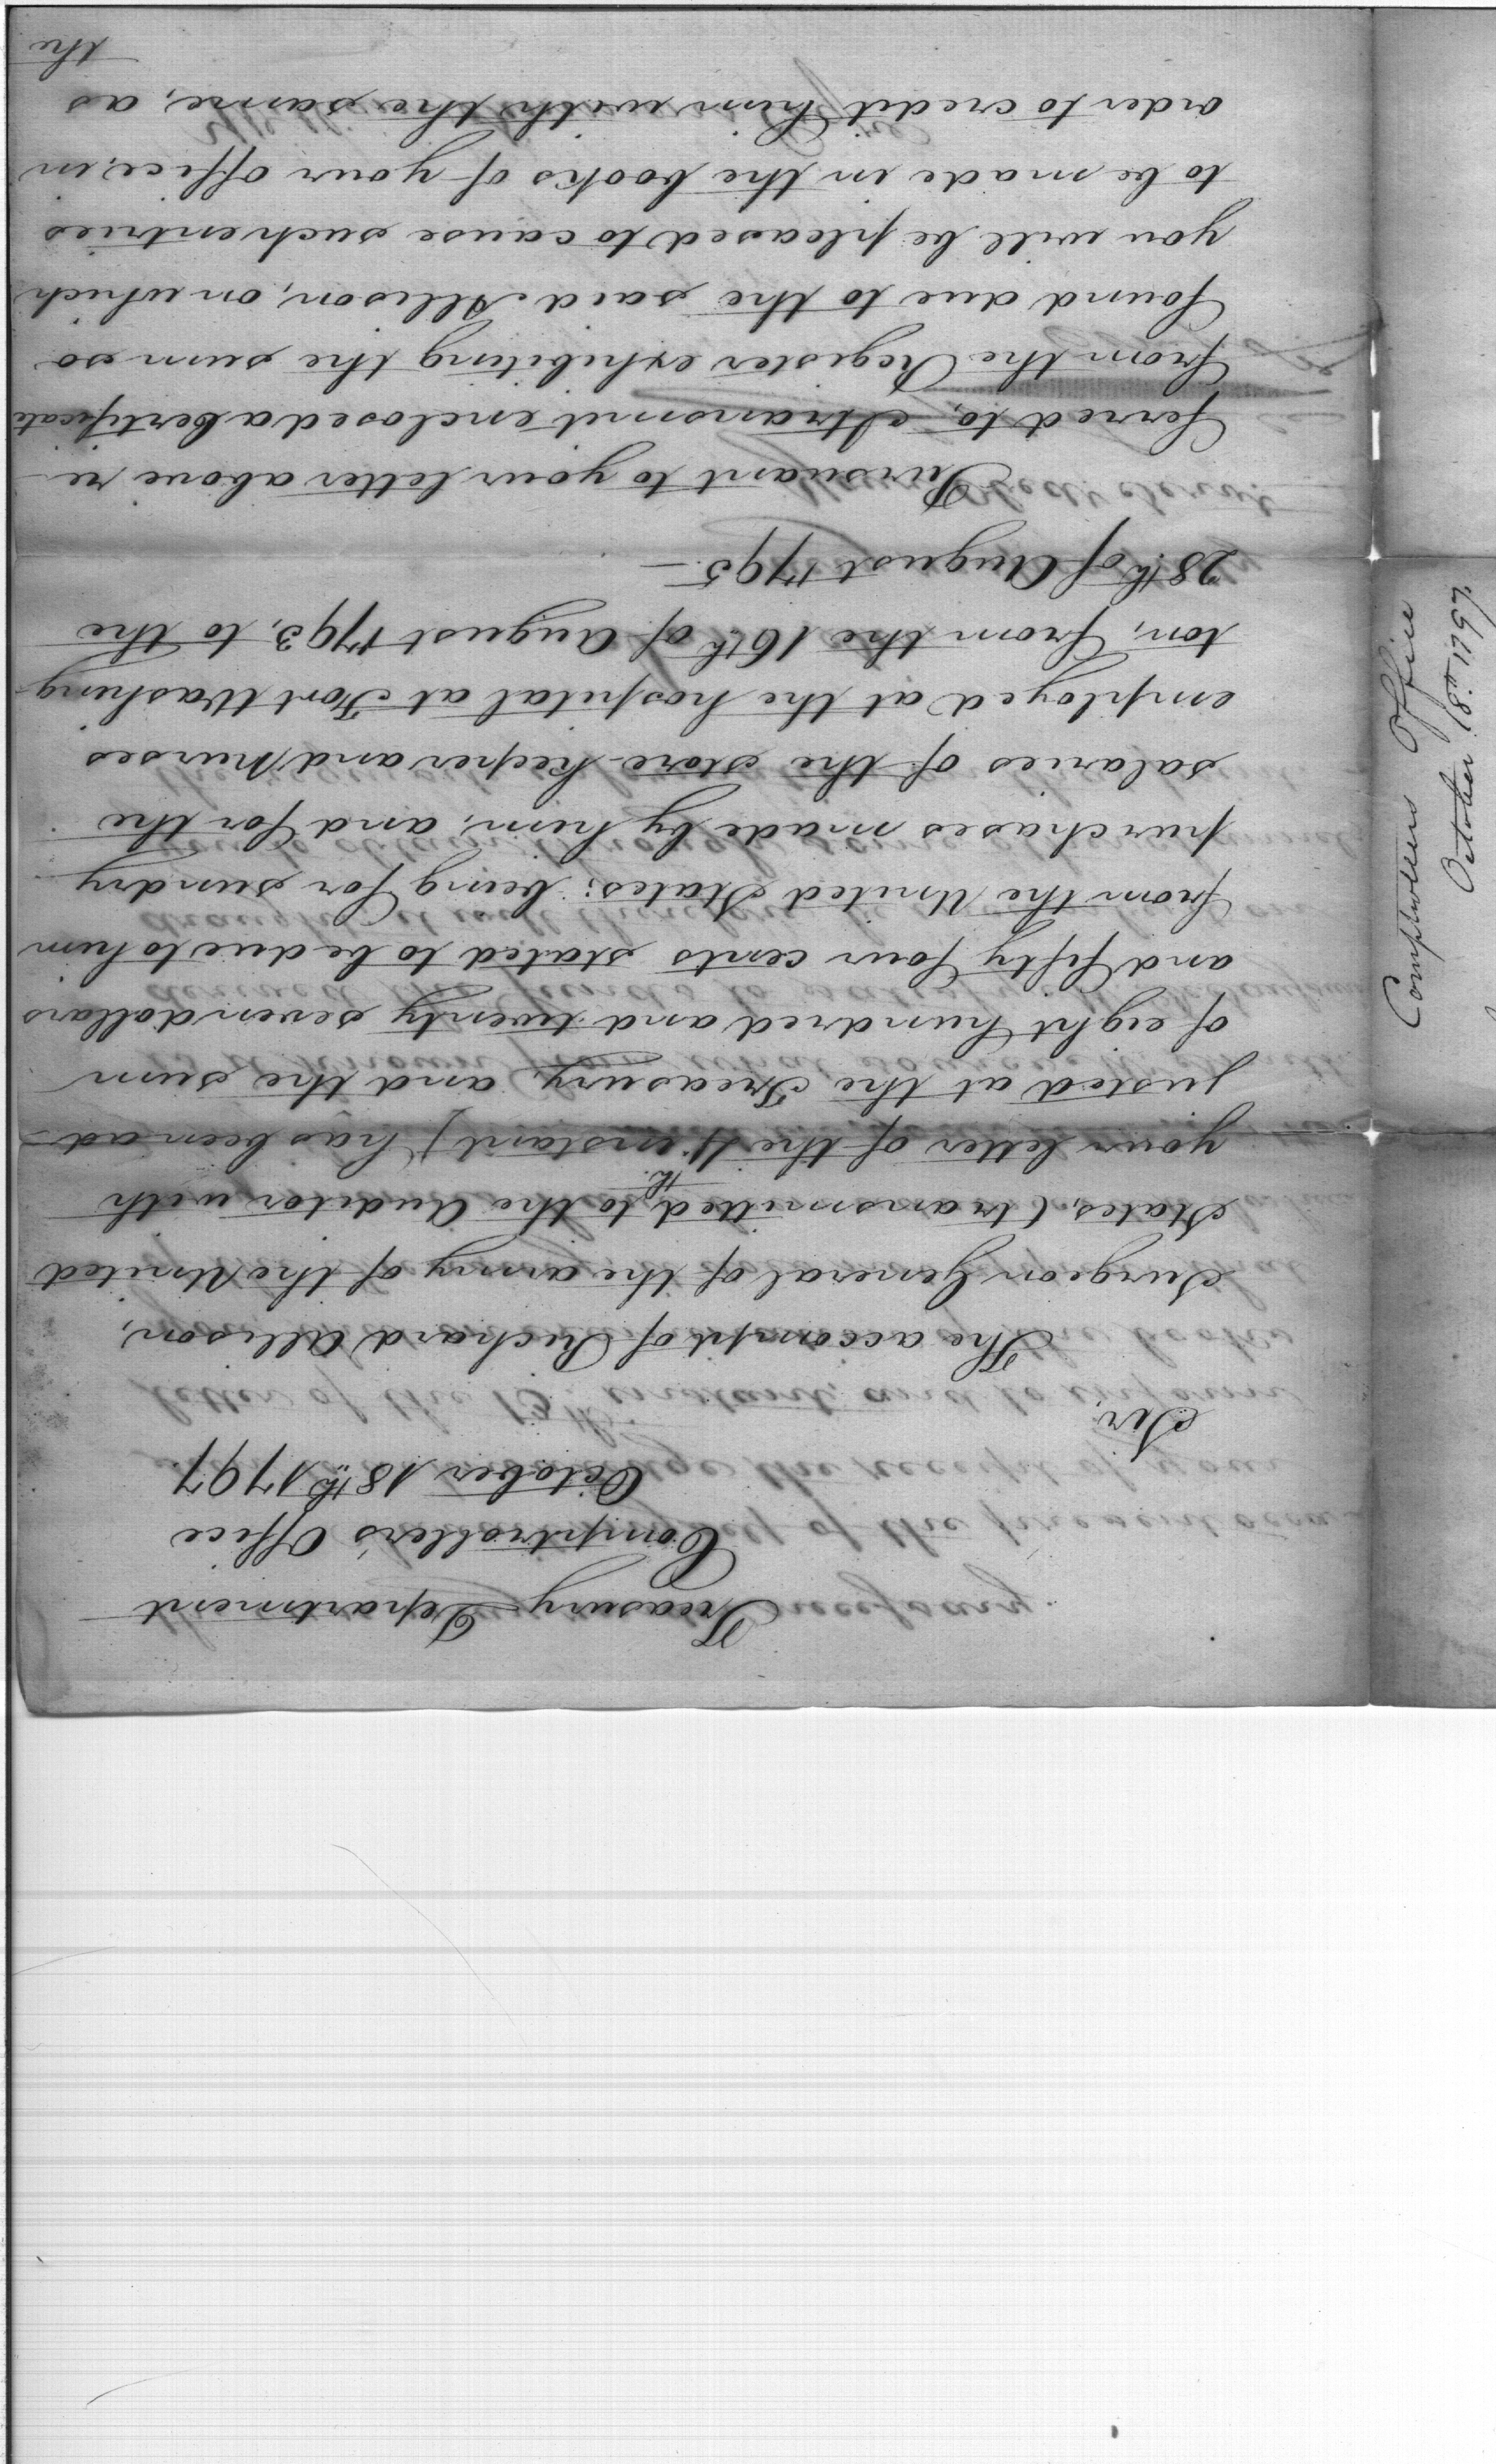 Treasury Department
Comptroller's Office
October 18th 1797
Sir,
The accompt of Richard Allison,
Surgeon General of the army of the United
States, (transmitted to the Auditor with
your letter of the 4th instant) has been ad-
justed at the Treasury, and the sum
of eight hundred and twenty seven dollars
and fifty four cents stated to be due to him
from the United States; being for sundry
purchases made by him, and for the
salaries of the store-keeper and nurses
employed at the hospital at Fort Washing-
ton, from the 16th of August 1793, to the
28th of August 1795.—
Pursuant to your letter above re-
ferred to, I transmit enclosed a Certificate
from the Register exhibiting the sum so
found due to the said Allison, on which
you will be pleased to cause such entries
to be made in the books of your office, in
order to credit him with the same, as
the
Comptrollers Office
October 18th 1797